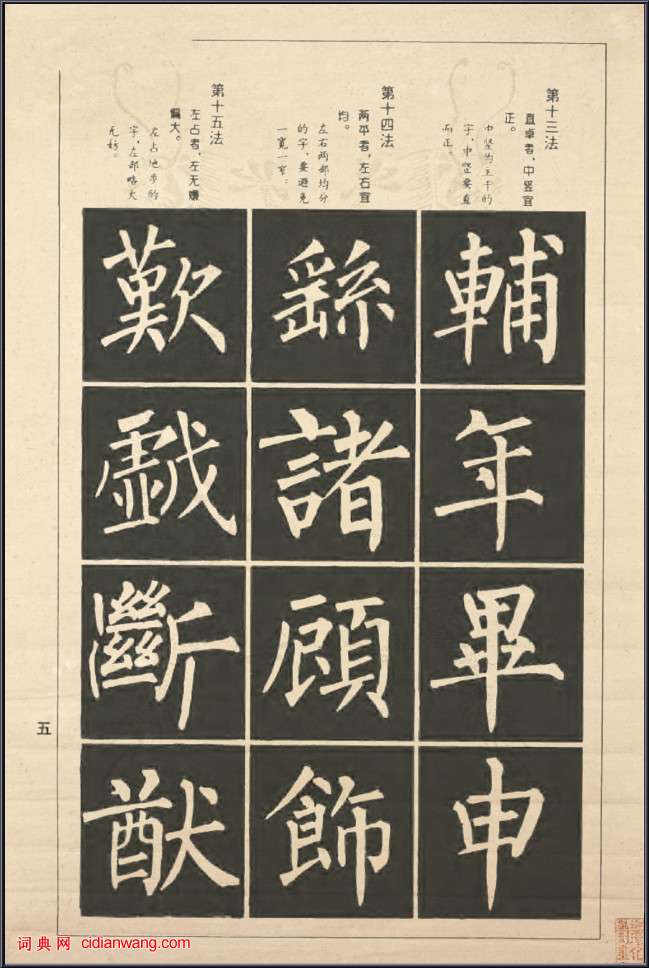 第十三法
直卓者，中竖宜
正。
中竖为主干的
字，中竖要直
而正。
輔
年
畢
申
第十四法
两平者，左右宜
均。
左右两部均分
的字，要避免
一宽一窄。
繇
諸
顧
飾
第十五法
左占者，左无嫌
偏大。
左占地步的
字，左部略大
无妨。
歎
戯
斷
猷
五
词典网 cidianwang.com